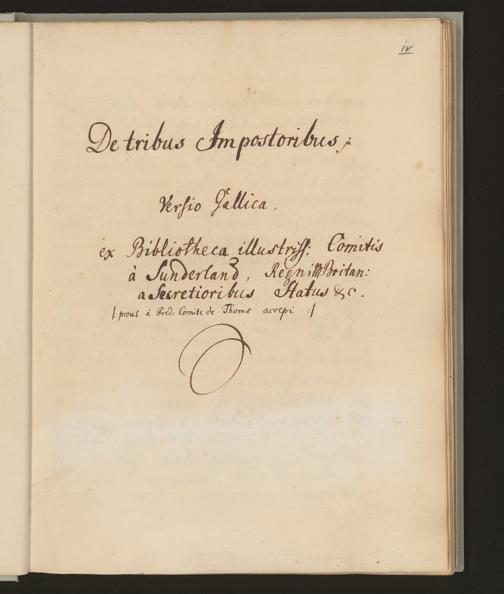 ir
De tribus Impostoribus;
Versio Gallica.
ex Bibliotheca illustriss: Comitis
à Sunderland, Regni M Britan:
a Secretioribus Status &c.
/: prout à Præd: Comite de Thoms accepi :/